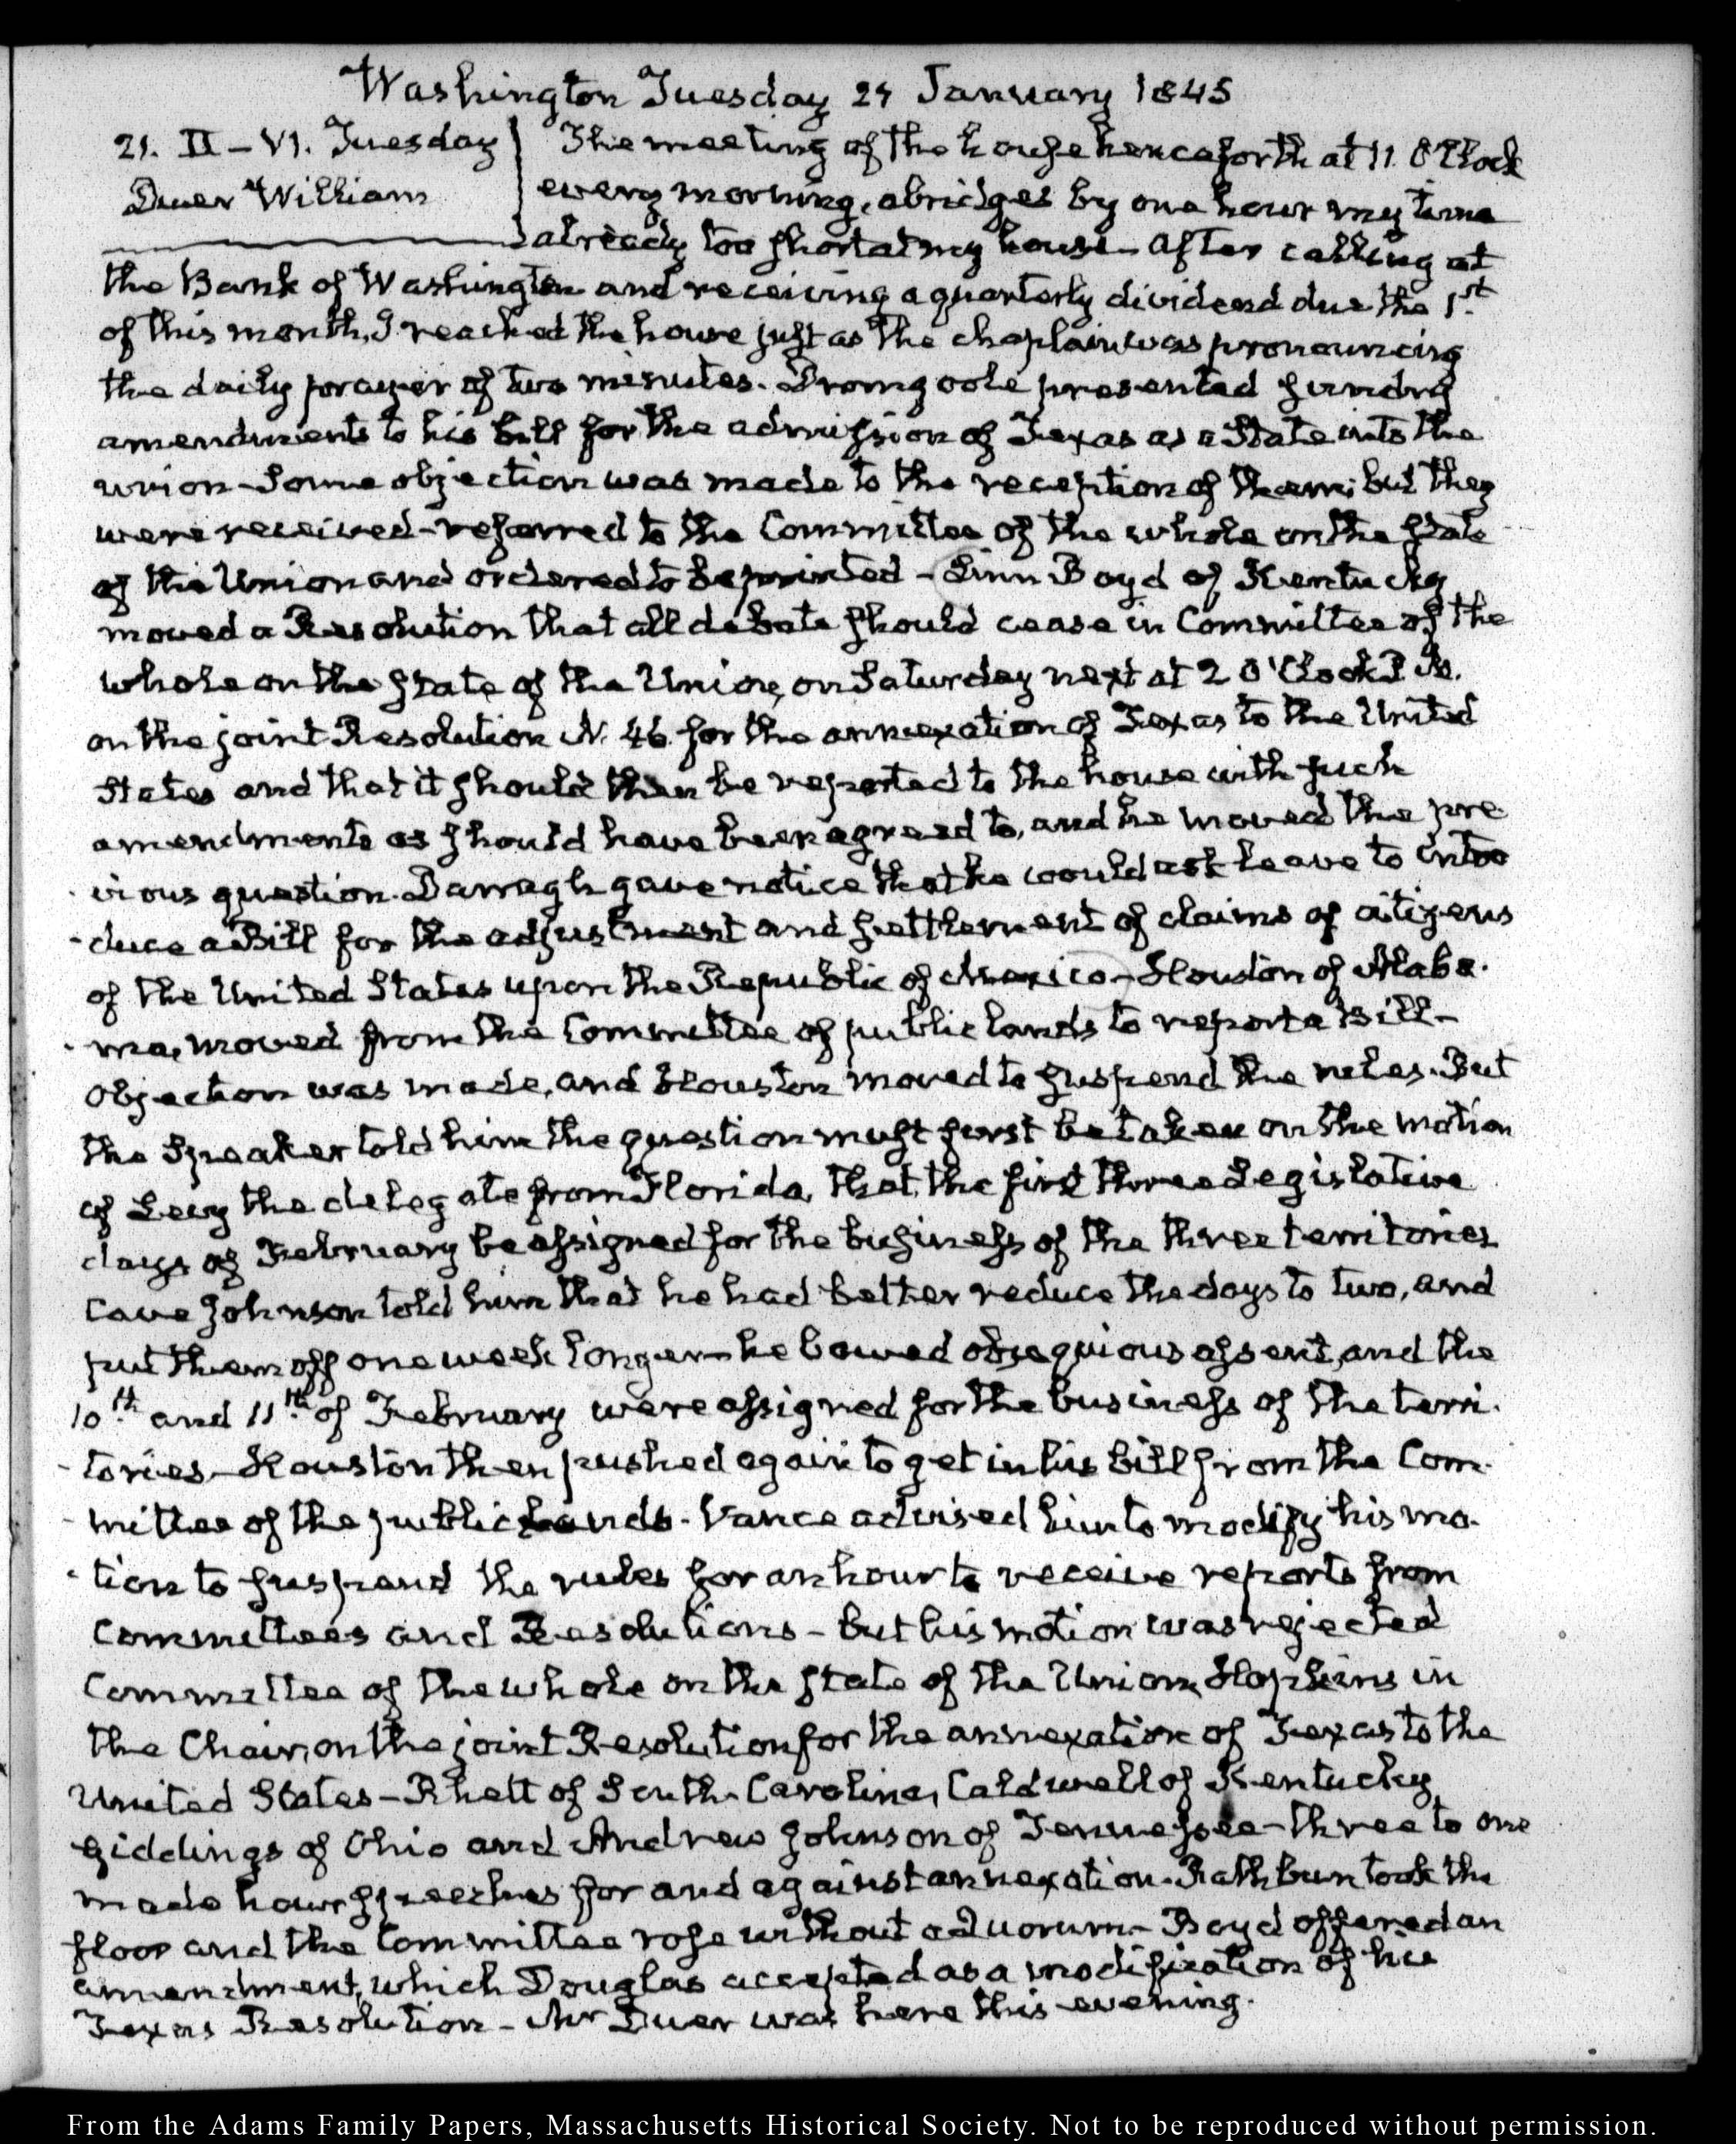 Washington Tuesday 21 January 1845
21. II – VI. Tuesday
Duer William
The meeting of the house henceforth at 11. O'Clock
every morning, abridges by one hour my time
already too short at my house – After calling at
the Bank of Washington and receiving a quarterly dividend due the 1st
of this month, I reached the house just as the chaplain was pronouncing
the daily prayer of two minutes. Dromgoole presented sundry
amendments to his bill for the admission of Texas as a State into the
union – Some objection was made to the reception of them; but they
were received – referred to the Committee of the whole on the State
of the Union and ordered to be printed – Linn Boyd of Kentucky
moved a Resolution that all debate should cease in Committee of the
whole on the State of the Union, on Saturday next at 2 O'Clock P.M.
on the joint Resolution N. 46. for the annexation of Texas to the United
States and that it should then be reported to the house with such
amendments as should have been agreed to, and he moved the pre
vious question. Darragh gave notice that he would ask leave to intro
duce a Bill for the adjustment and settlement of claims of citizens
of the United States upon the Republic of Mexico – Houston of Alaba-
ma, moved from the Committee of public lands to report a Bill –
objection was made, and Houston moved to suspend the rules. But
the Speaker told him the question must first be taken on the motion
of Levy the delegate from Florida, that the first three Legislative
days of February be assigned for the business of the three territories
Cave Johnson told him that he had better reduce the days to two, and
put them off one week longer – he bowed obsequious assent, and the
10th and 11th of February were assigned for the business of the terri-
tories – Houston then pushed again to get in his bill from the Com-
mittee of the public Lands. Vance advised him to modify his mo-
tion to suspend the rules for an hour to receive reports from
Committees and Resolutions – but his motion was rejected
Committee of the whole on the State of the Union, Hopkins in
the Chair, on the joint Resolution for the annexation of Texas to the
United States – Rhett of South-Carolina, Caldwell of Kentucky
Giddings of Ohio and Andrew Johnson of Tennessee – three to one
made hour speeches for and against annexation. Rathbun took the
floor and the Committee rose without a Quorum – Boyd offered an
amendment, which Douglas accepted as a modification of his
Texas Resolution – Mr Duer was here this evening.
From the Adams Family Papers, Massachusetts Historical Society. Not to be reproduced without permission.